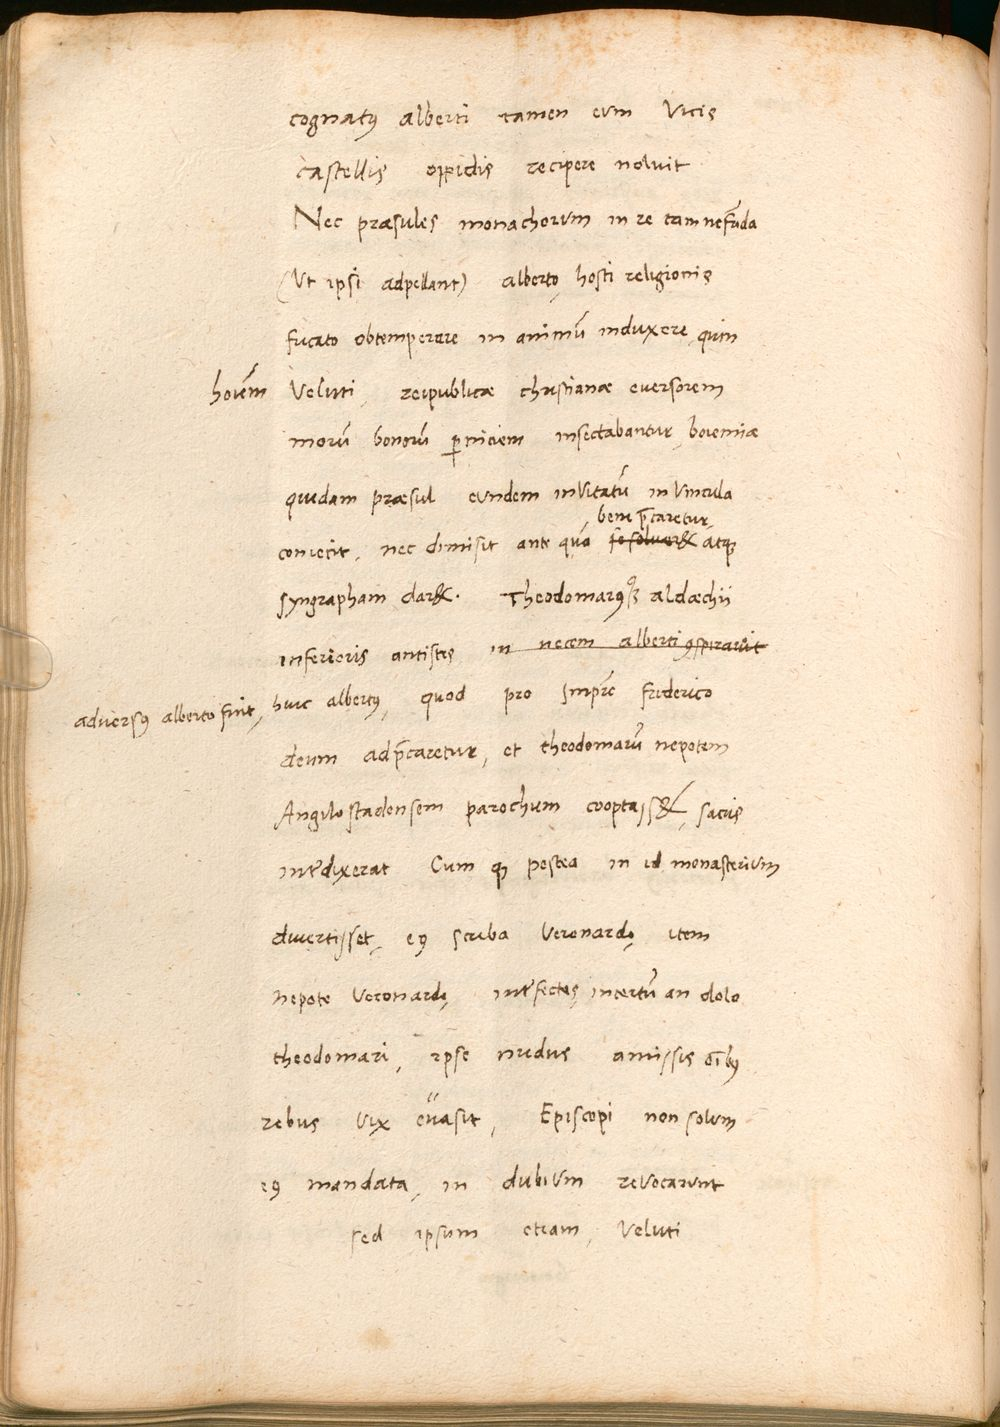 cognatꝰ alberti tamen eum Vicis
castellis oppidis recipere noluit
Nec præsules monachorum in re tam nefāda
(Ut ipsi adpellant) alberto, hosti religionis
fucato obtemperare in animū induxere, quin
hoiēm Veluti, reipublicæ christianæ eversorem
morū bonorū ꝑniciem insectabantur, boiemiæ
quidam præsul eundem invitatū in Vincula
bene p̄caretur,
coniecit, nec dimisit ante quā se solver& atqꝫ
syngrapham dar&. Theodomarꝰqꝫ aldæchii
inferioris antistes in necem alberti ꝯspiravit
adversꝰ alberto fuit, huic albertꝰ, quod pro Impr̄e friderico
deum adp̄caretur, et theodomarū nepotem
Angilostadensem parochum cooptass&, sacris
intˀdixerat Cum qꝫ postea in id monasterium
divertisset, eꝰ scriba Veronardo, item
nepote Veronardi, intˀfectis, incertū an dolo
theodomari, ipse nudus amissis oībꝰ
rebus vix evasit, Episcopi non solum
eꝰ mandata, in dubium revocarunt
sed ipsum etiam, Veluti